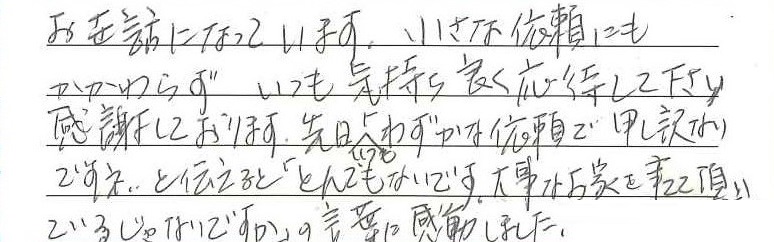 お世話になっています。小さな依頼にも
かかわらず いつも気持ち良く応待して下さり
感謝しております。先日「いつもわずかな依頼で申し訳ない
ですね、と伝えると「とんでもないです。大事なお家を建てて頂い
ているじゃないですか」の言葉に感動しました。